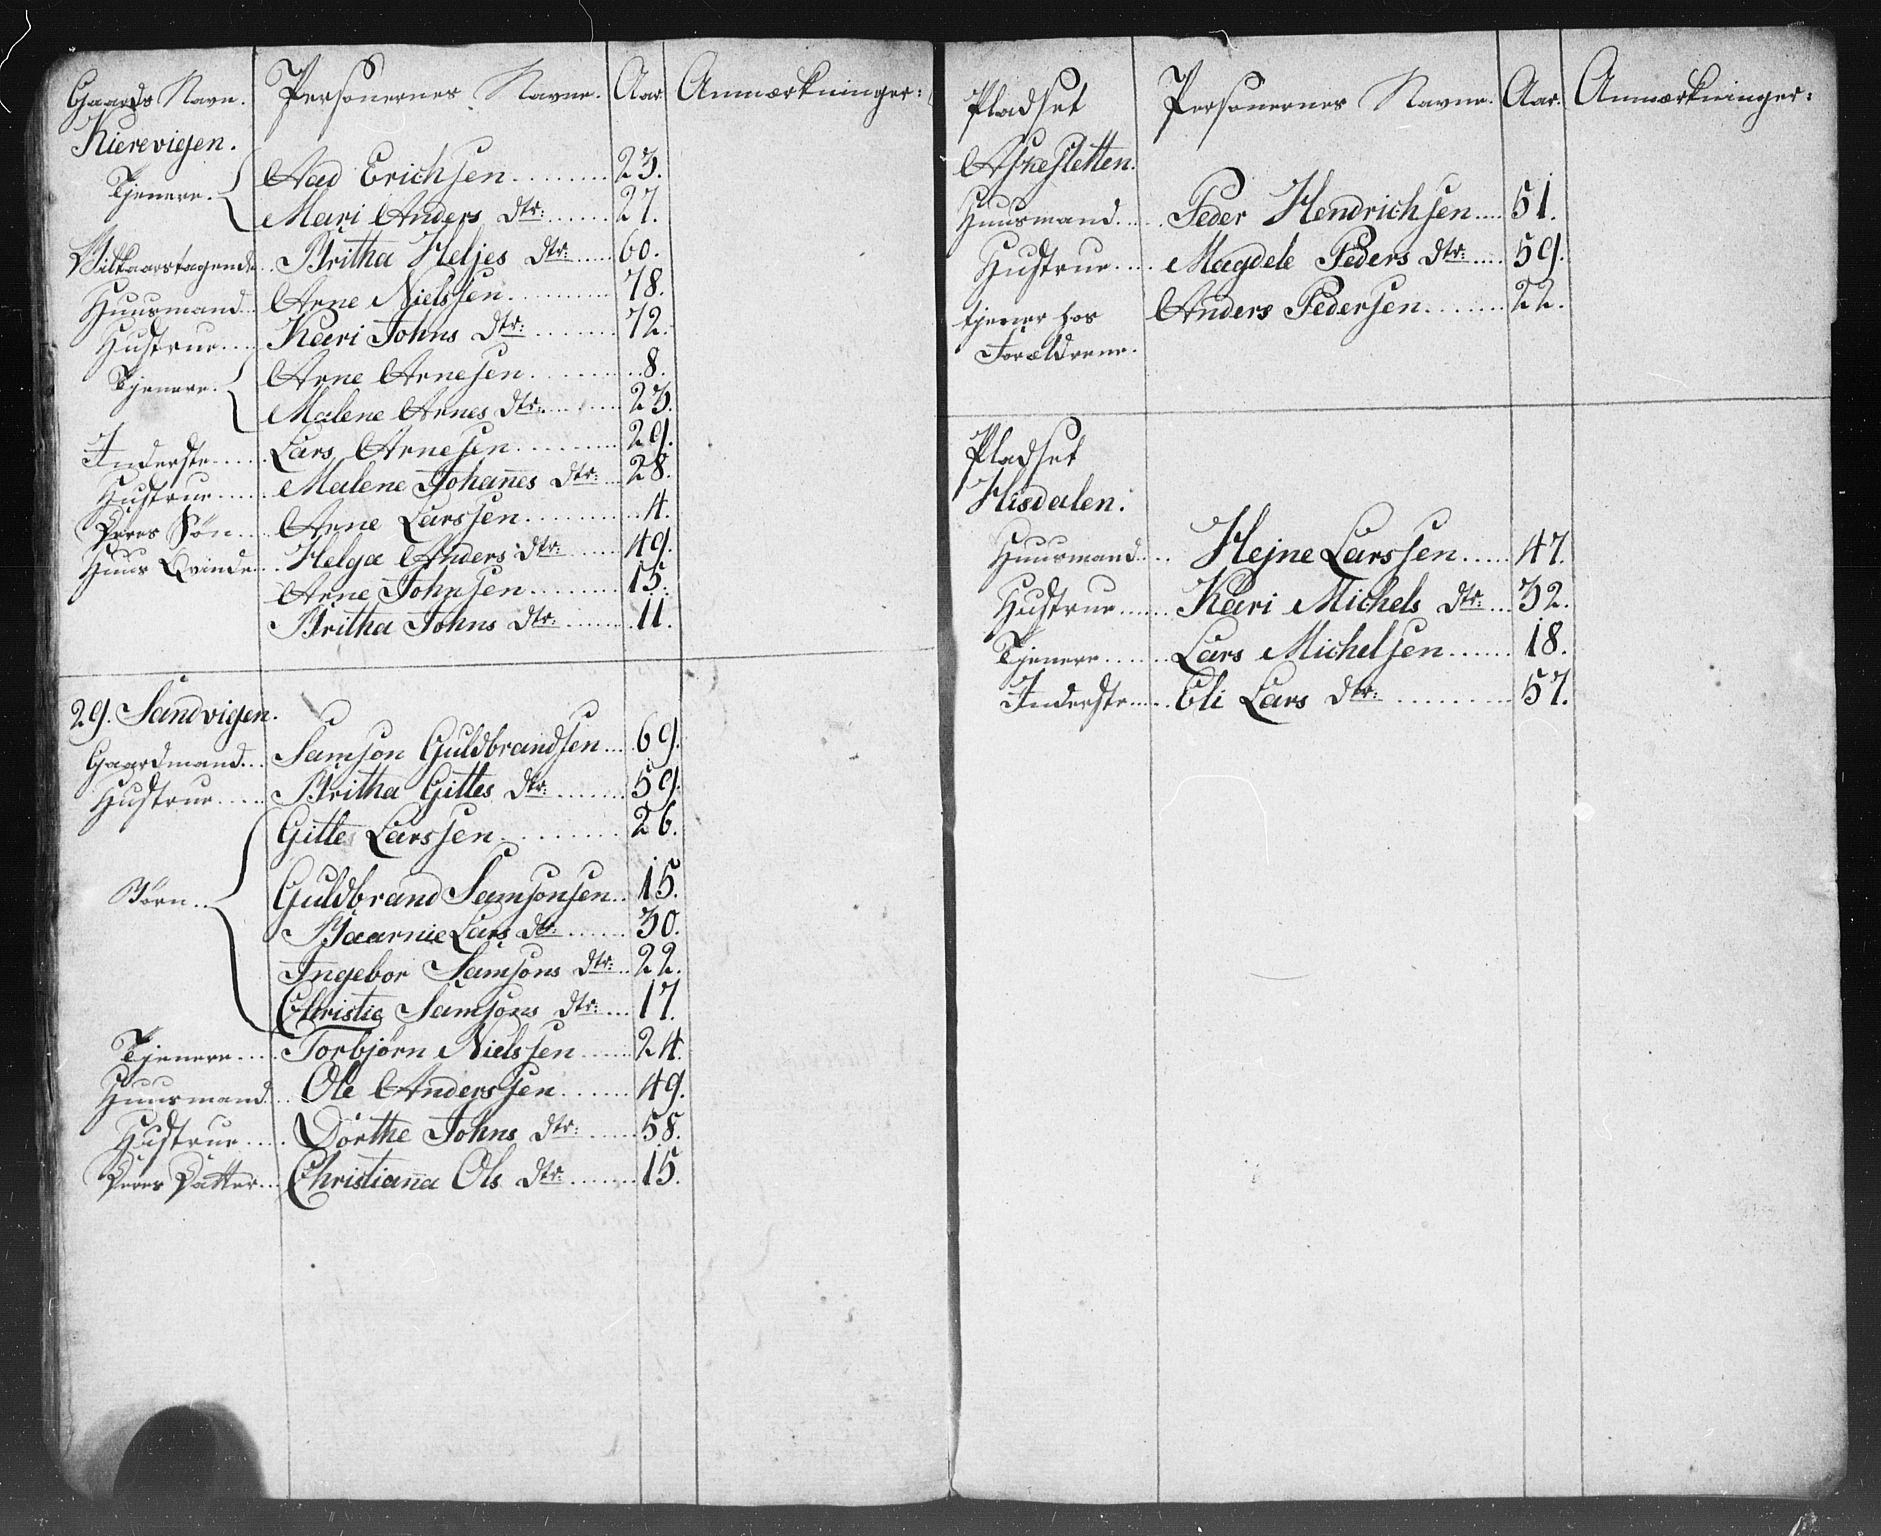 Gaards Navn. Personernes Navne. Aar Anmærkninger:
Kierevigen.
Tjenere. Aad Erichsen 23.
Mari Anders Dtr: 27.
Vilkaarstagende Britha Heljes Dtr: 60.
Huusmand Arne Nielssen 78.
Hustrue Kari Johns Dtr: 72.
Tjenere. Arne Arnesen 8.
Malene Arnes Dtr. 23.
Inderste Lars Arnesen 29.
Hustrue Malene Johannes Dtr: 28.
Deres Søn Arne Larssen 4.
Huus Qvinde Helga Anders Dtr: 49.
Arne Johnsen 15.
Britha Johns Dtr: 11.
29. Sandvigen.
Gaardmand Samson Guldbrandsen 69.
Hustrue Britha Gittes Dtr: 59.
Gitte Larssen 26.
Børn Guldbrand Samsonsen 15.
Baarnie Lars Dtr: 30.
Ingebor Samsons Dtr: 22.
Christie Samsons Dtr: 17.
Tjenere Torbjørn Nielssen 24.
Huusmand Ole Anderssen 49.
Hustrue Dorthe Johns Dtr: 58.
Deres Datter Christianna Ols Dtr: 15.
Pladset Personernes Navne. Aar. Anmærkninger:
Huusmand Peder Hendrichsen 51.
Hustrue Magdele Peders Dtr: 59.
tjener hos Anders Pedersen 22.
Forældrene.
Pladset
Hisdalen:
Huusmand Hejne Larssen 47.
Hustrue Kari Michels Dtr: 32.
Tjenere Lars Michelsen 18.
Inderste Eli Lars Dtr: 57.